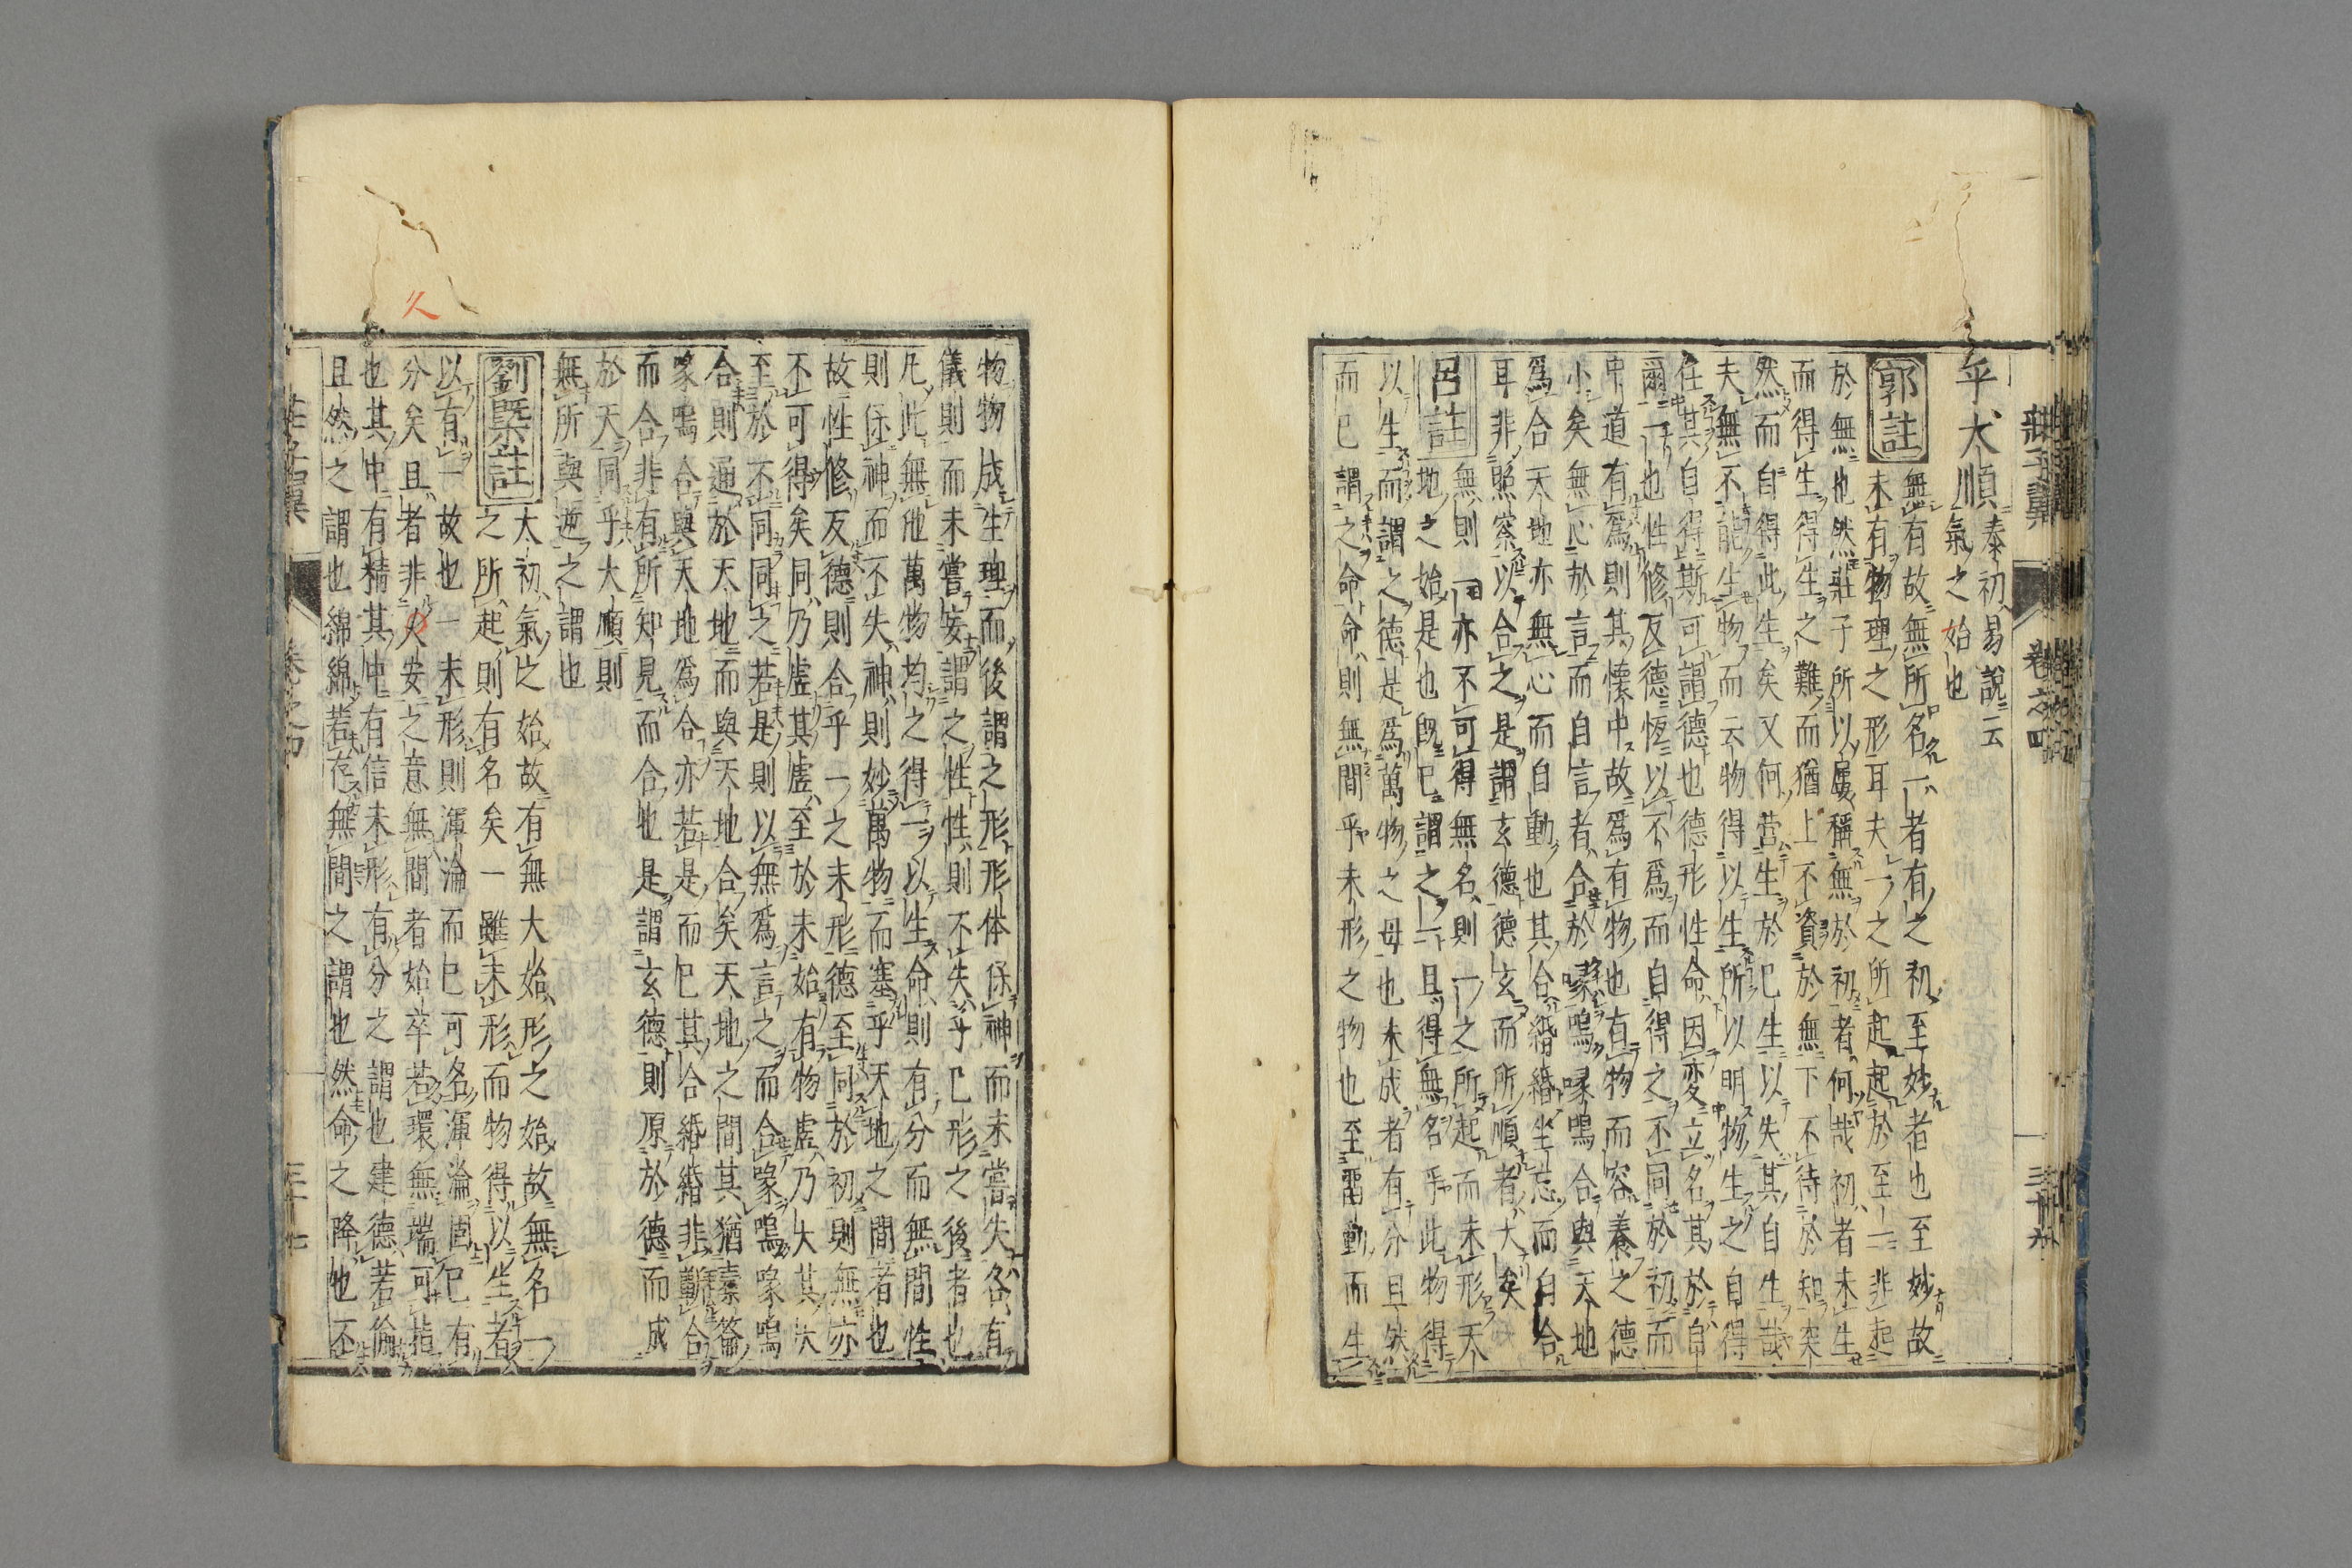 莊子翼 卷之四 三十六
乎大順 泰初易說云
氣之始也
郭註 無有故無所名一者有之初至妙者也至妙故
未有物理之形耳夫一之所起起於至一非起
於無也然莊子所以屢稱無於初者何哉初者未生
而得生得生之難而猶上不資於無下不待於知突
然而自得此生矣又何营生於已生以失其自生哉
夫無不能生物而云物得以生所以明物生之自得
任其自得斯可謂德也德形性命因变立名其於自
爾一也性修反德恆以不爲而自得之不同於初而
中道有爲則其懷中故爲有物也有物而容養之德
小矣無心於言而自言者合於喙鳴喙鳴合與天地
爲合天地亦無心而自動也其合緡緡坐忘而自合
耳非照察以合之是謂玄德德玄而所順者大矣
呂註 無則一亦不可得無名則一之所起而未形天
地之始是也旣已謂之一且得無名乎此物得
以生而謂之德是爲萬物之母也未成者有分且然
而已謂之命命則無間乎未形之物也至畱動而生
物物成生理而後謂之形形体保神而未嘗失各有
儀則而未嘗妄謂之性性則不失乎已形之後者也
凡此無他萬物均之得一以生命則有分而無間性
則保神而不失神則妙萬物而塞乎天地之間者也
故性修反德則合乎一之未形德至同於初則無亦
不可得矣同乃虛其虛至於未始有物虛乃大其大
至於不同同之若是則以無爲言之而合喙鳴喙鳴
合則通於天地而與天地合矣天地之間其猶橐籥
喙鳴合與天地爲合亦若是而已其合緡緡非斷合
而合非有所知見而合也是謂玄德則原於德而成
於天同乎大順則
無所與逆之謂也
劉槩註 太初氣之始故有無大始形之始故無名一
之所起則有名矣一雖未形而物得以生者
以有一故也一未形則渾淪而已可名渾淪固已有
分矣且者非久安之意無間者始卒若環無端可指
也其中有精其中有信未形有分之謂也建德若偷
且然之謂也綿綿若存無間之謂也然命之降也不
莊子翼 卷之四 三十七
久